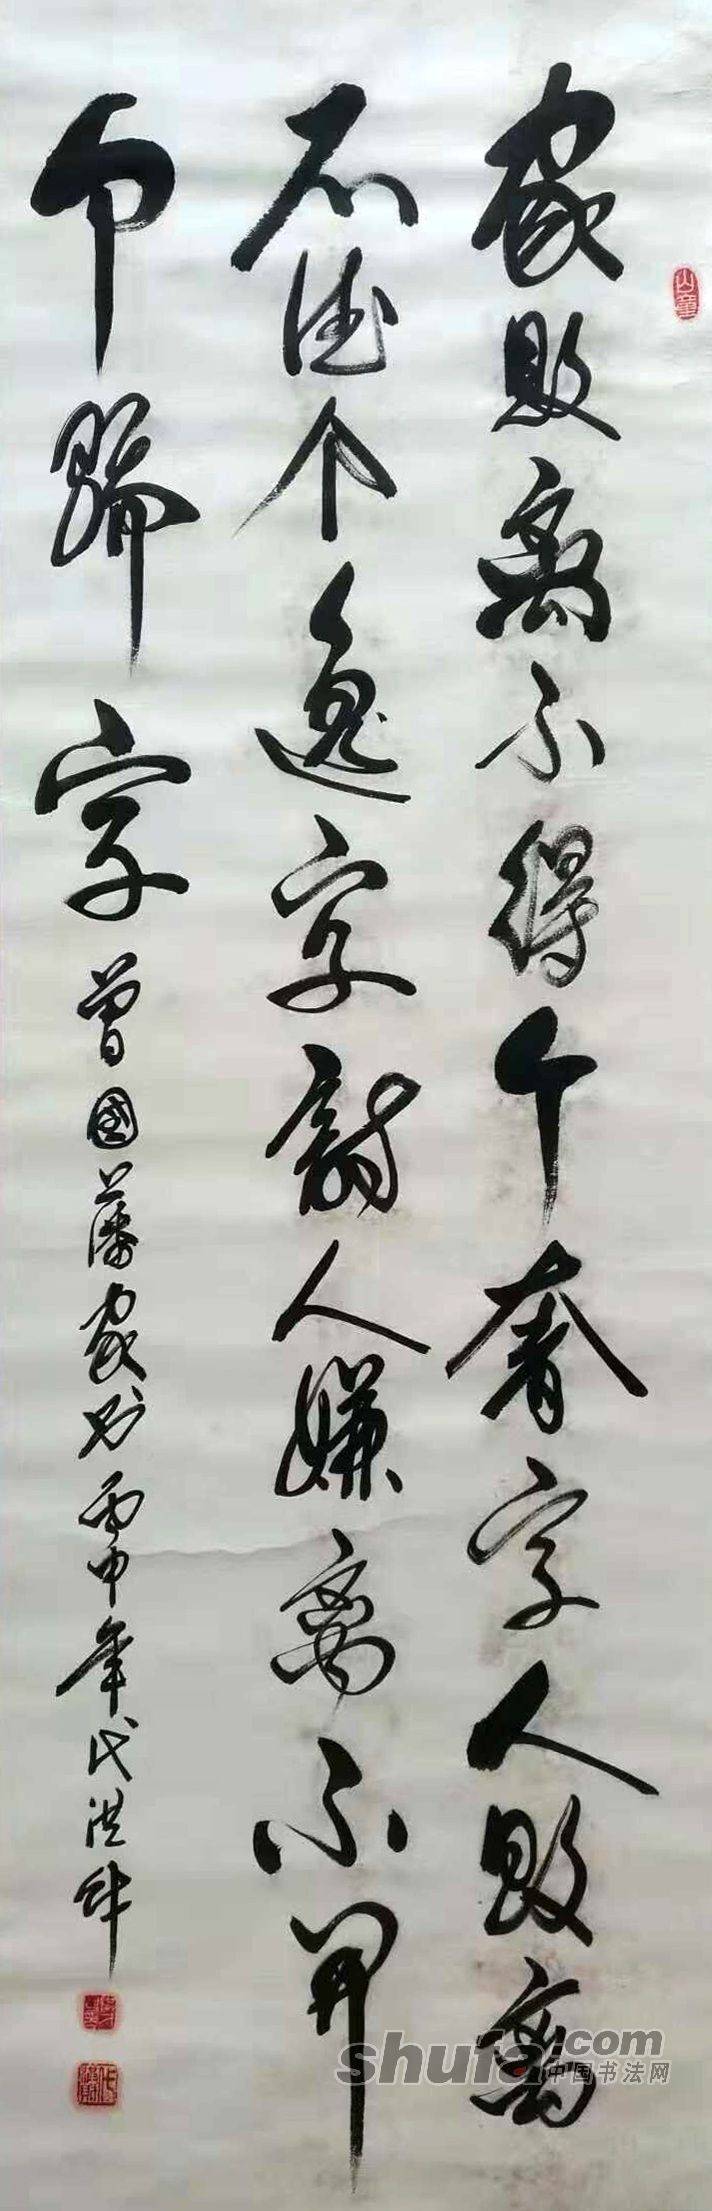 家败离不得个奢字人败离
不得个逸字讨人嫌离不开
个骄字
曾國藩家书丙申年代洪
山童
shufa.com
中国书法网